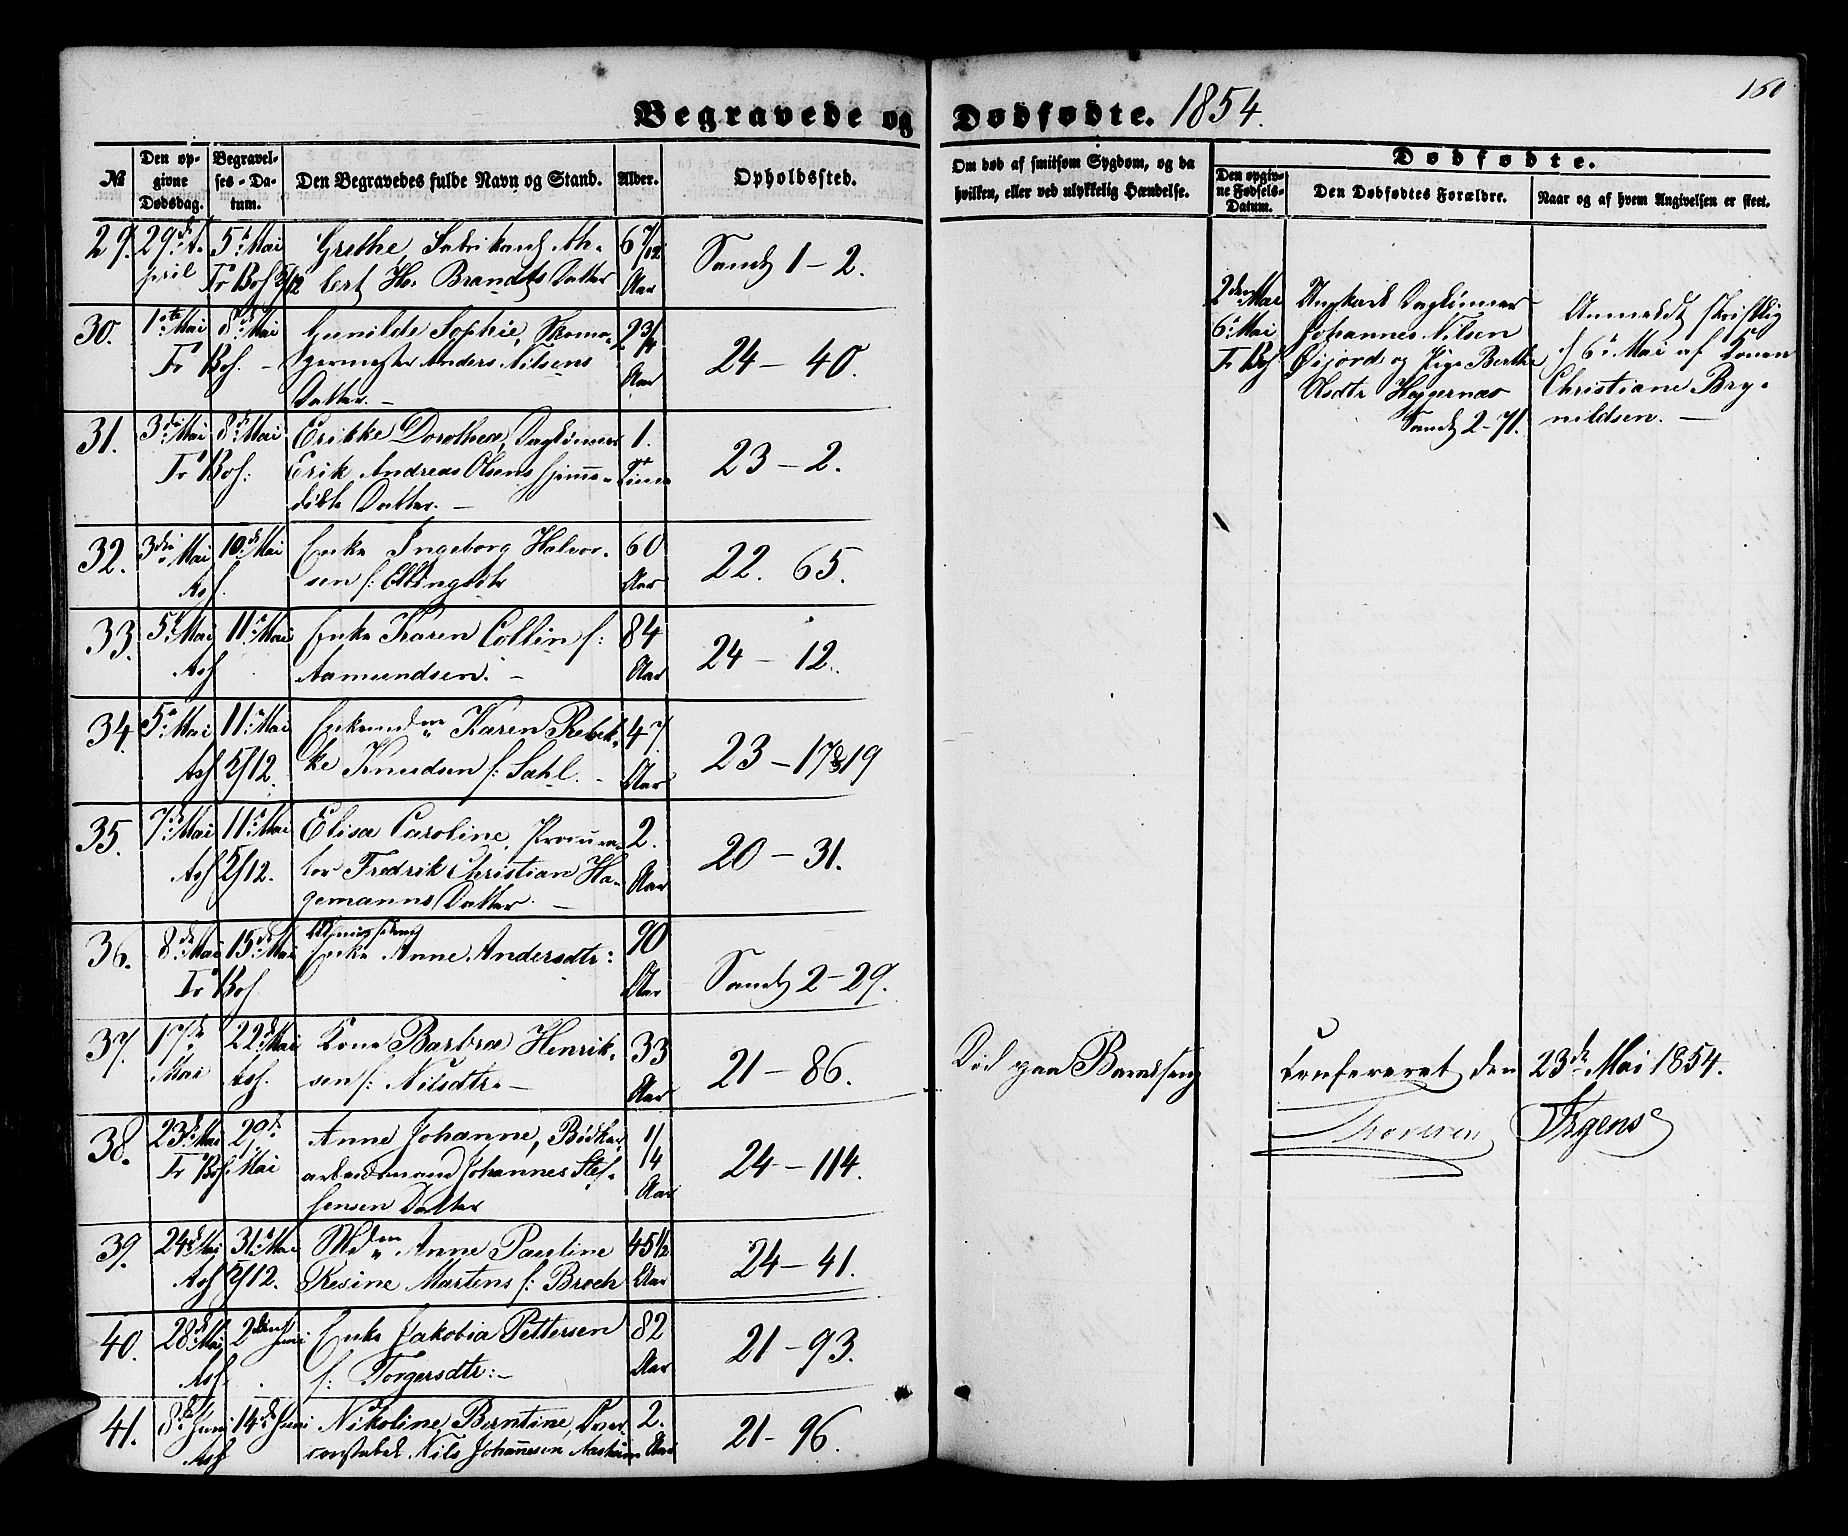 160
Begravede og Dødfødte. 1854.
№
Den opgivne Dødsdag.
Begravelses-Datum.
Den Begravedes fulde Navn og Stand.
Alder.
Opholdssted.
Om død af smitsom Sygdom, og da hvilken, eller ved ulykkelig Hændelse.
Dødfødte.
Den opgivne Fødsels-Datum.
Den Dødfødtes Forældre.
Naar og af hvem Angivelsen er skeet.
29. 29de April 5te Mai Grethe, Fabrikant Al- 6 7/12
Fr Bos 5/12 bert H. Brandts Datter Aar
Sands 1 - 2.
30. 1ste Mai 8de Mai Gunilde Sophie, Skoma-
Fr Bos. - germester Anders Nilsens Aar
Datter. -
24 - 40.
31. 3de Mai 8de Mai Erikke Dorothea, Dagleiner 1.
Fr Bos: Erik Andreas Olsens hjemme- Time
døbte Datter. -
23 - 2.
32. 3die Mai 10de Mai Enke Ingeborg Halvor- 60
sen f: Ellingsdtr Aar
22. 65.
33. 5te Mai 11te Mai Enke Karen Collin f: 84
Aamundsen. - Aar
24 - 12.
34. 5te Mai 11te Mai Karen Rebek- 47
5/12. ke Knudsen f: Sahl. - Aar
23 - 17&19
35. 7de Mai 11te Mai Elisa Caroline, Procura- 2.
5/12. tor Fredrik Christian Ha- Aar
gemanns Datter. -
20 - 31.
36. 8de Mai 15de Mai Enke Anne Andersdtr: 90
Fr Bos Aar
Sands 2 - 29.
37. 17de Mai 22de Mai Kone Barbra Henrik- 33
sen f: Nilsdtr. - Aar
21 - 86.
Død paa Barselseng
38. 23de Mai 29de Mai Anne Johanne, Bødker 1/4
Fr Bos. arbeidsmand Johannes Stef- Aar
fensen Datter
24 - 114.
39. 24de Mai 31te Mai Mdm Anne Pauline 45 1/2
5/12. Resine Martens f: Broch Aar
24 - 41.
40. 28de Mai 2den Juni Enke Jakobia Pettersen 82
f: Torgersdtr: - Aar
21 - 93.
41. 8de Juni 14de Juni Nikoline Berntine, 2.
Nils Johannesen Aar
21 - 96.
2den Mai
6te Mai
Fr Bos
Ungkarl Dagleiner
Johannes Nilsen
Øijord og Pige Berthe
Sands 2-71.
Anmeldt skriftlig
d 6te Mai af Konen
Christiane Bry-
nildsen. -
Confereret den 23de Mai 1854.
Thoresen Irgens